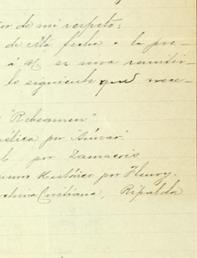 or de mi respeto:
de esta fecha a la pre-
á U. se sirva remitir-
lo siguiente que nece-
"Rébsamen"
ética por
por Zamacois
Histórico por Fleury.
Cristiana, Ripalda